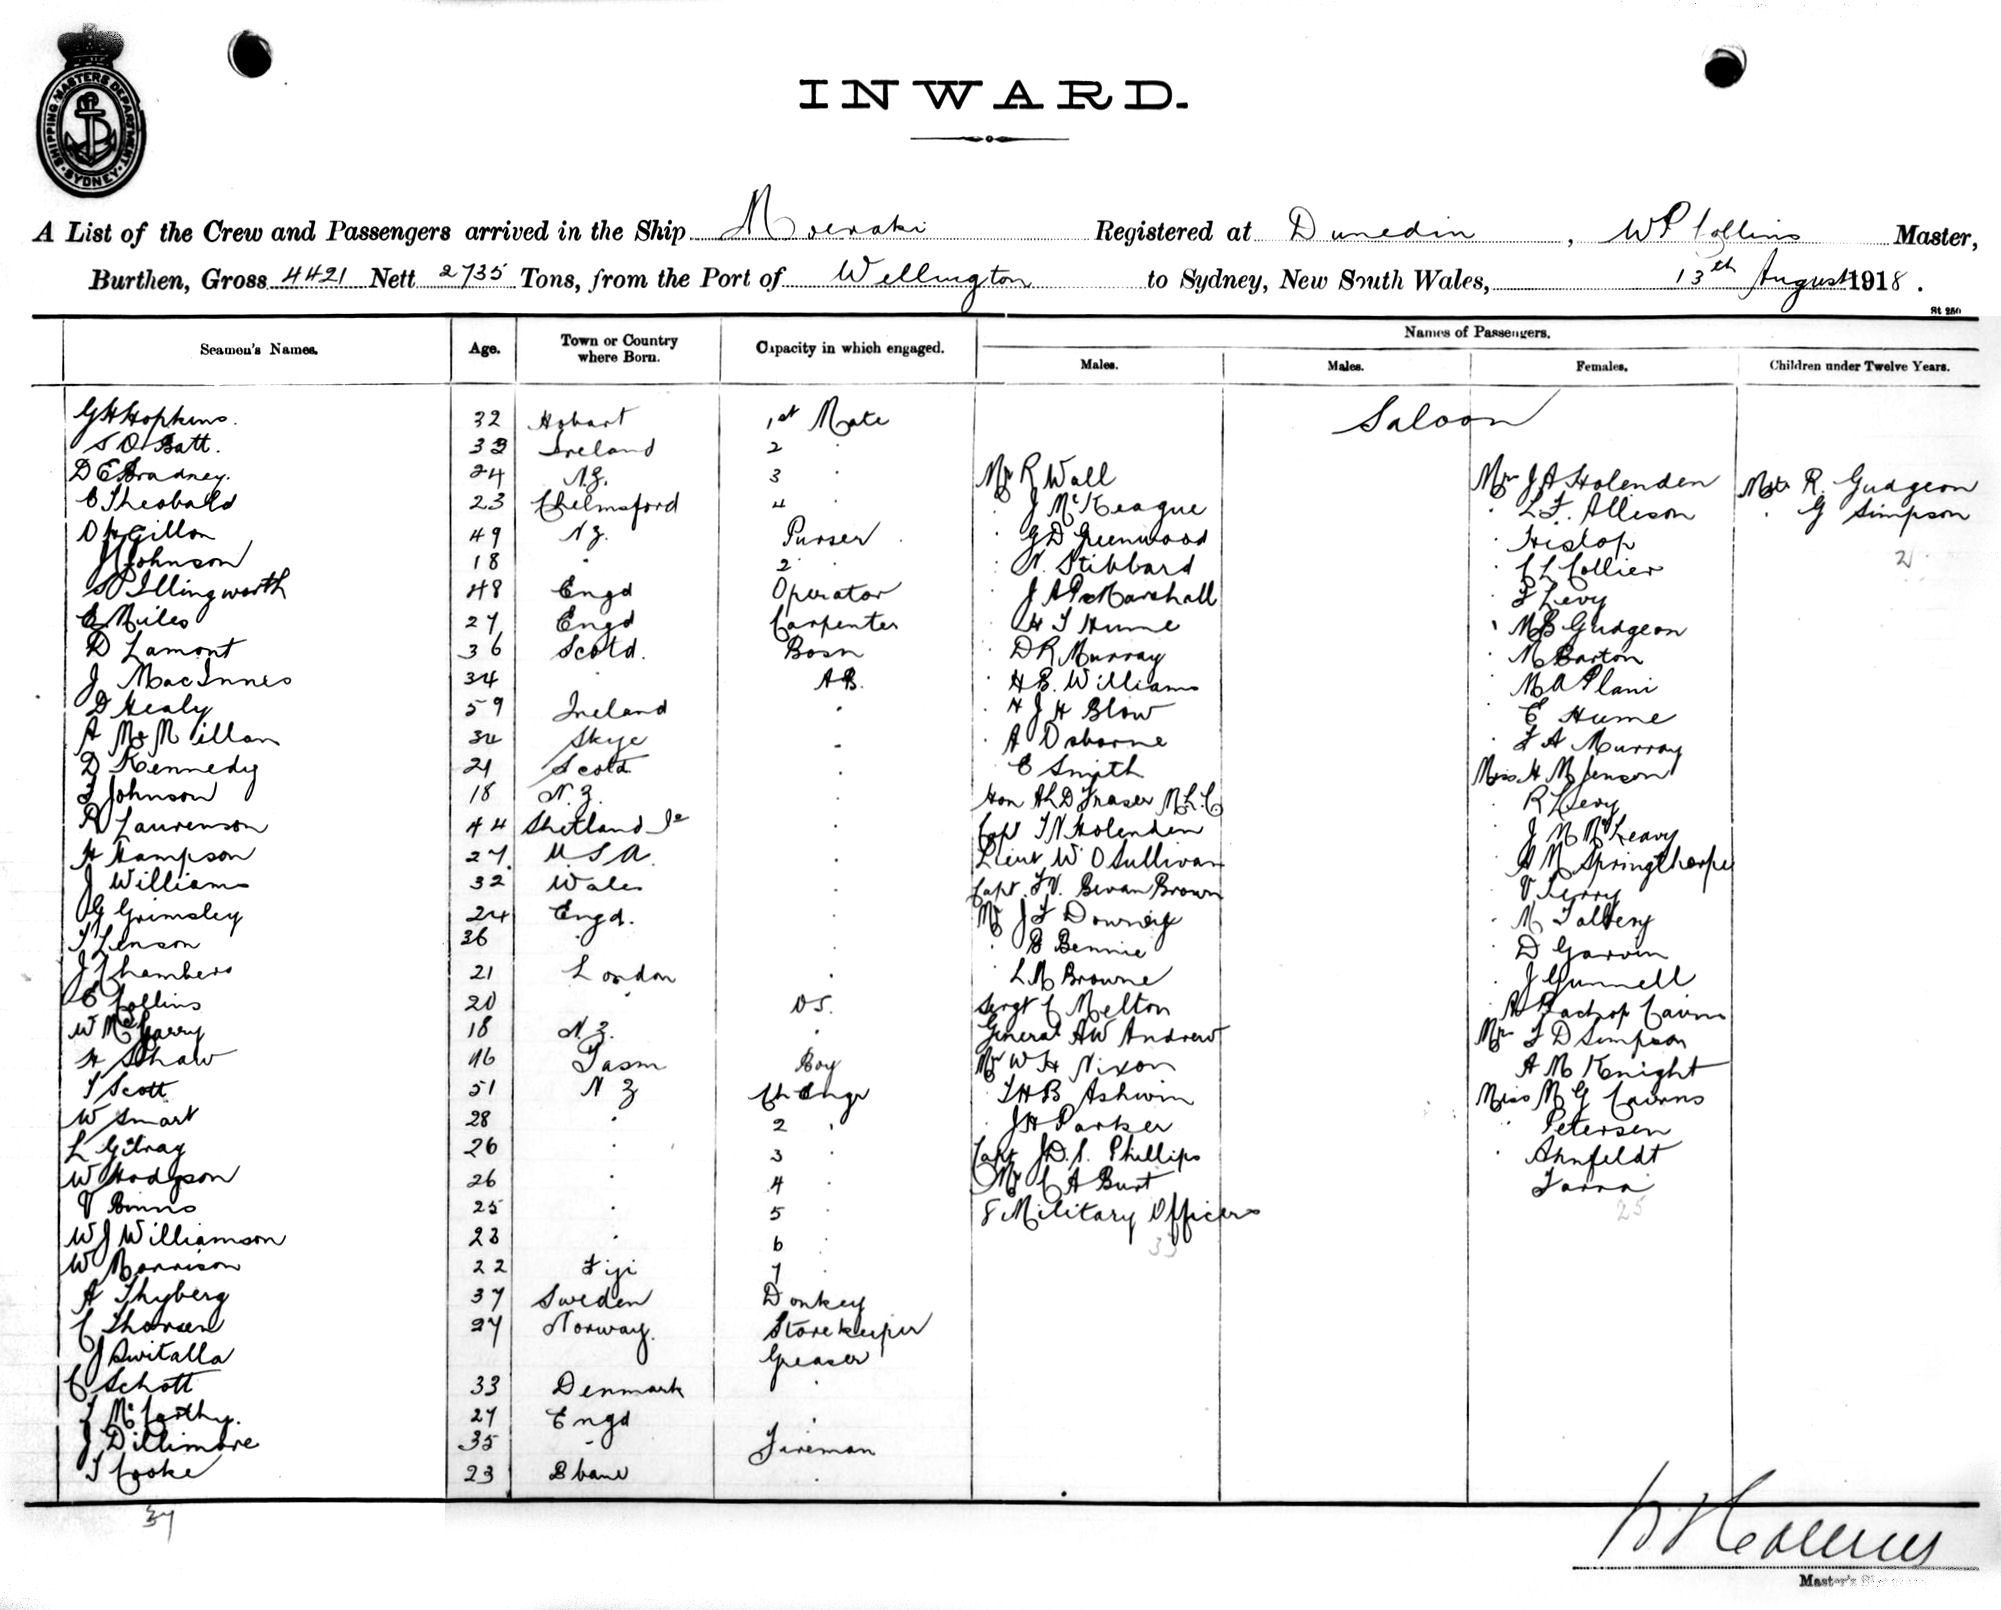 SHIPPING MASTERS DEPARTMENT SYDNEY
INWARD.
A List of the Crew and Passengers arrived in the Ship Moeraki Registered at Dunedin, W P Collins Master,
Burthen, Gross 4421 Nett 2735 Tons, from the Port of Wellington to Sydney, New South Wales, 13th August 1918.
St 250
Seamen's Names. Age. Town or Country where Born. Capacity in which engaged. Names of Passengers.
Males. Males. Females. Children under Twelve Years.
Saloon
G H Hopkins. 32 Hobart 1st Mate
S O Batt. 33 Ireland 2 "
D E Bradney. 24 N.Z. 3 "
C Theobald 23 Chelmsford 4 "
D H Gillon 49 N.Z. Purser
J Johnson 18 " 2 "
S Illingworth 48 Engd Operator
E Miles 27 Engd Carpenter
D Lamont 36 Scotd. Bosn
J MacInnes 34 " A.B.
D Healy 59 Ireland "
A McMillan 34 Skye "
D Kennedy 21 Scotd "
J Johnson 18 N.Z. "
R Laurenson 44 Shetland Is "
H Hampson 27 U.S.A. "
J Williams 32 Wales "
G Grimsley 24 Engd. "
T Lenson 36 " "
J Chambers 21 London "
C Collins 20 " O.S.
W McGarry 18 N.Z. "
H Shaw 16 Tasm Boy
T Scott 51 N Z Ch Engr
W Smart 28 " 2 "
L Gilray 26 " 3 "
W Hodgson 26 " 4 "
V Binns 25 " 5 "
W J Williamson 23 " 6 "
W Morrison 22 Fiji 7 "
A Thyberg 37 Sweden Donkey
C Thorsen 27 Norway. Storekeeper
J Switalla Greaser
C Schott 33 Denmark "
J McCarthy. 27 Engd "
J Dillimore 35 " Fireman
T Cooke 23 Bbane "
37
Mr R Wall
" J McKeague
" G D Greenwood
" N. Stibbard
" J A P Marshall
" H T Hume
" D R Murray
" H B. Williams
" H J H Blow
" A Osborne
" E Smith
Hon A L D Fraser M.L.C.
Capt T N Holenden
Lieut W O Sullivan
Capt. F. V. Bevan Brown
Mr J F Downey
" B Bennie
" L M Browne
Sergt C Melton
General A W Andrew
Mr W H Nixon
" T H B Ashwin
" J H Parker
Capt J. D. S. Phillips
Mr C A Burt
8 Military Officers
33
Mrs J A Holenden
" L F. Allison
" Hislop
" C L Collier
" F Levy
" M B Gudgeon
" M Barton
" M A Plani
" E Hume
" F A Murray
Miss H M Jenson
" R Levy
" J M McLeavy
" A M Springthorpe
" V Terry
" M Talbery
" D Garvin
" J Gunnell
" A Bachop Cairns
Mrs F D Simpson
A M Knight
Miss M G Cairns
" Petersen
" Ahnfeldt
Farra
25
Mstr R. Gudgeon
" G Simpson
2
W P Collins
Master's